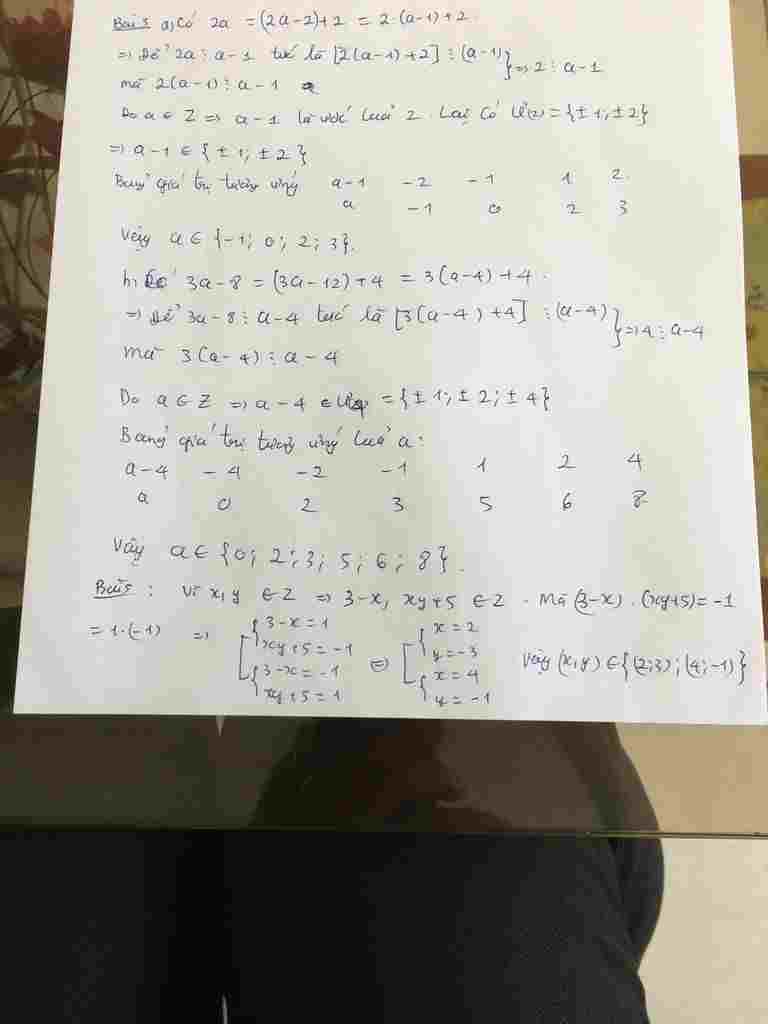 Bài 3 a, Có 2a = (2a-2)+2 = 2.(a-1)+2.
=> Để 2a ⋮ a-1 tức là [2(a-1)+2] ⋮ (a-1) } => 2 ⋮ a-1
mà 2(a-1) ⋮ a-1
Do a ∈ Z => a-1 là ước của 2. Lại có Ư(2) = {±1; ±2}
=> a-1 ∈ {±1; ±2}
Bảng giá trị tương ứng a-1 -2 -1 1 2
a -1 0 2 3
Vậy a ∈ {-1; 0; 2; 3}.
b, Có 3a-8 = (3a-12)+4 = 3(a-4)+4.
=> Để 3a-8 ⋮ a-4 tức là [3(a-4)+4] ⋮ (a-4) } => 4 ⋮ a-4
mà 3(a-4) ⋮ a-4
Do a ∈ Z => a-4 ∈ Ư(4) = {±1; ±2; ±4}
Bảng giá trị tương ứng của a:
a-4 -4 -2 -1 1 2 4
a 0 2 3 5 6 8
Vậy a ∈ {0; 2; 3; 5; 6; 8}.
Bài 5: Vì x,y ∈ Z => 3-x, xy+5 ∈ Z. Mà (3-x).(xy+5) = -1
= 1.(-1) => [ { 3-x=1 <=> [ { x=2
xy+5=-1 y=-3
{ 3-x=-1 { x=4 Vậy (x,y) ∈ {(2;3); (4;-1)}
xy+5=1 y=-1